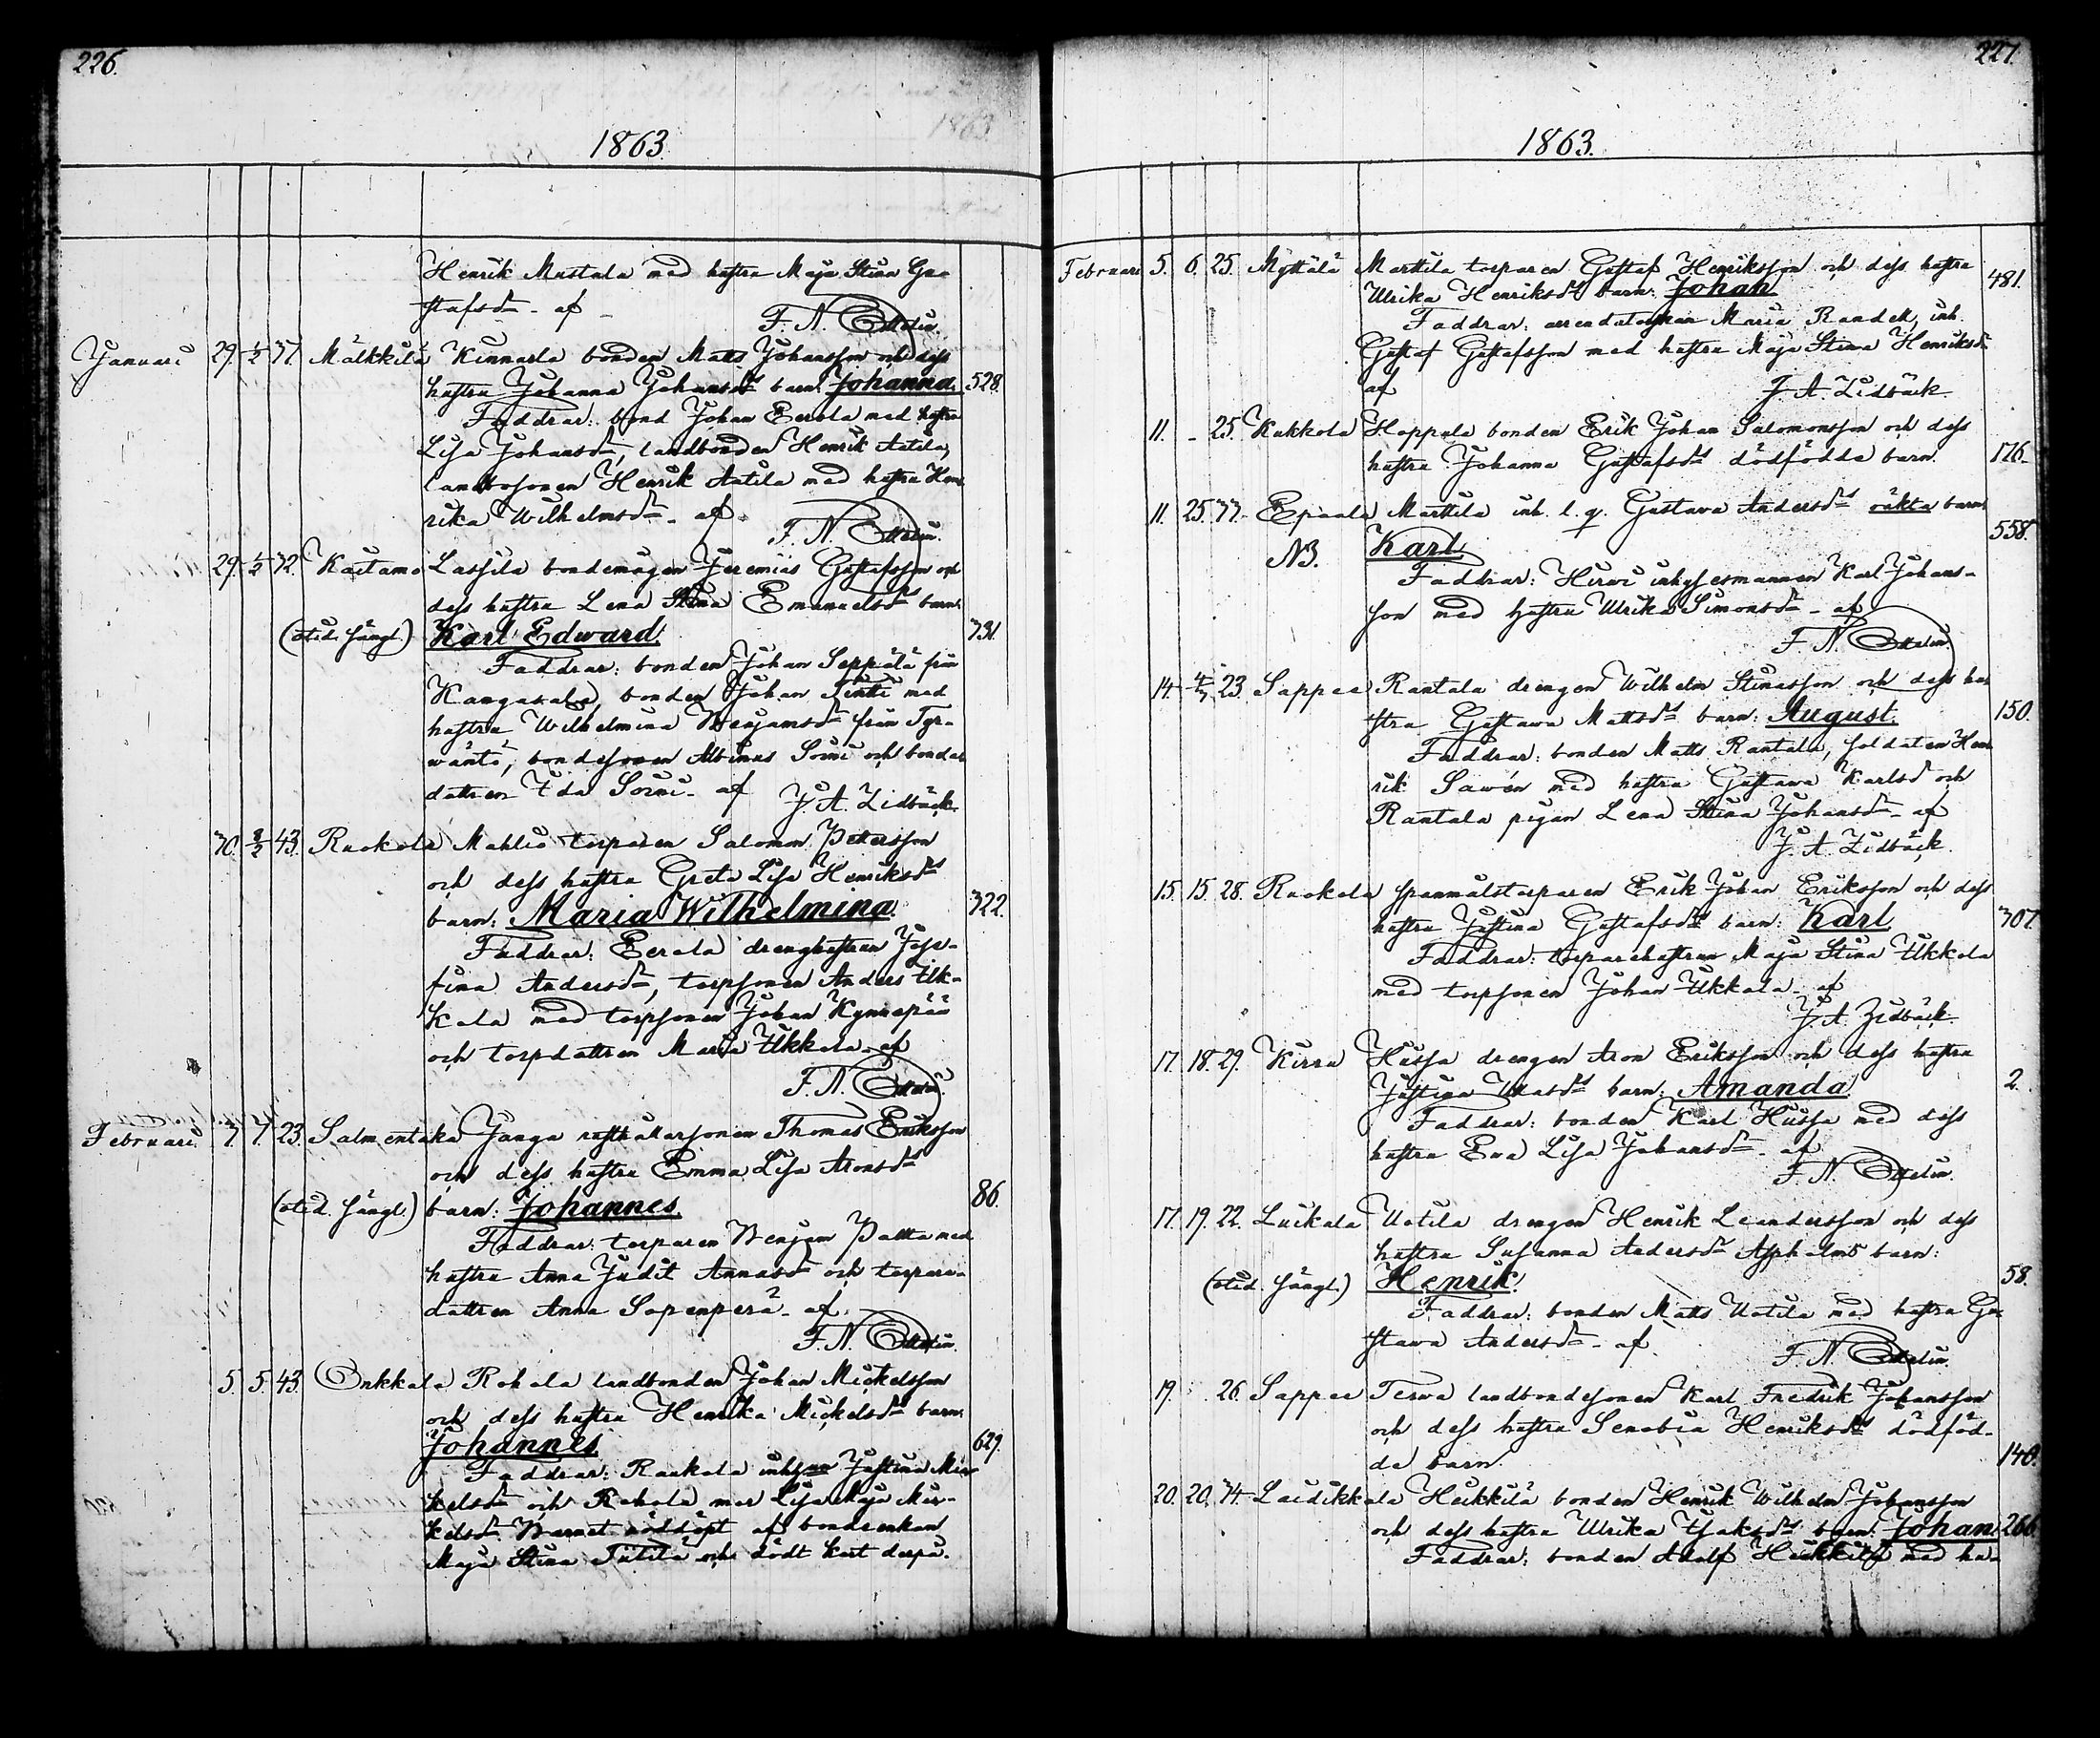 226.
1863.
Henrik Mustala med hustru Maja Stina Gu-
stafsdr. af
F. N. Ottelin.
Januari 29. 1/2 37. Mälkkilä Kinnarla bonden Matts Johansson och dess
hustru Johanna Johansdrs barn: Johanna. 528.
Faddrar: bond Johan Eerola med hustru
Lisa Johansdr, landbonden Henrik Aatila,
landbosonen Henrik Aatila med hustru Hen-
rika Wilhelmsdr. af
F. N. Ottelin.
29. 1/2 32. Kaitamo Lassila bondemågen Jeremias Gustafsson och
dess hustru Lena Stina Emanuelsdrs barn:
(otid. sängl.) Karl Edward. 731.
Faddrar: bonden Johan Seppälä från
Kangasala, bonden Johan Tintti med
hustru Wilhelmina Benjamsdr från Tyr-
wäntö, bondesonen Albinus Soini och bonde
dottren Ida Soini. af J. A. Zidbäck.
30. 2/2 43. Raukola Mahlio torparen Salomon Pettersson
och dess hustru Greta Lisa Henriksdrs
barn: Maria Wilhelmina. 322.
Faddrar: Eerola drenghustrun Jose-
fina Andersdr, torpsonen Anders Uk-
kola med torpsonen Johan Kynnäpää
och torpdottren Maria Ukkola. af
F. N. Ottelin.
Februari. 7. 7. 23. Salmentaka Jaaga rusthållarsonen Thomas Eriksson
och dess hustru Emma Lisa Aronsdrs
(otid. sängl.) barn: Johannes. 86.
Faddrar: torparen Benjam Paltta med
hustru Anna Judit Annasdr och torpare-
dottren Anna Sopenperä. af
F. N. Ottelin.
5. 5. 43. Onkkala Rohola landbonden Johan Mickelsson
och dess hustru Henrika Mickelsdrs barn:
Johannes. 629.
Faddrar: Raukola Justina Mic-
kelsdr och Rohola mor Lisa Maja Mic-
kelsdr. Barnet nöddöpt af bondenkan
Maja Stina Tiitilä och dödt kort derpå.
227.
1863.
Februari 5. 6. 25. Myttälä Marttila torparen Gustaf Henriksson och dess hustru
Ulrika Henriksdrs barn: Johan. 481.
Faddrar: Maria Randell, inh.
Gustaf Gustafsson med hustru Maja Stina Henriksdr.
af
J. A. Zidbäck.
11. - 25. Kukkola Hoppula bonden Erik Johan Salomonsson och dess
hustru Johanna Gustafsdrs dödfödda barn. 176.
11. 25. 37. Epaala Marttila inh. l. q. Gustava Andersdrs oäkta barn:
NB. Karl. 558.
Faddrar: Hirvi inhysesmannen Karl Johans-
son med hustru Ulrika Simonsdr. af
F. N. Ottelin.
14. 23. Sappee Rantala drengen Wilhelm Stinasson och dess hu-
stru Gustava Mattsdrs barn: August. 150.
Faddrar: bonden Matts Rantala, soldaten Hen-
rik Sawén med hustru Gustava Karlsdr och
Rantala pigan Lena Stina Johansdr. af
J. A. Zidbäck.
15. 15. 28. Raukola spannmålstorparen Erik Johan Eriksson och dess
hustru Justina Gustafsdrs barn: Karl. 307.
Faddrar: torparehustrun Maja Stina Ukkola
med torpsonen Johan Ukkola. af
J. A. Zidbäck.
17. 18. 29. Kirra Hussa drengen Aron Eriksson och dess hustru
Justina barn: Amanda. 2.
Faddrar: bonden Karl Hussa med dess
hustru Eva Lisa Johansdr. af
F. N. Ottelin.
17. 19. 22. Luikala Uotila drengen Henrik Leandersson och dess
hustru Susanna Andersdr Aspholms barn:
(otid. sängl.) Henrik. 58.
Faddrar: bonden Matts Uotila med hustru Gu-
stava Andersdr. af
F. N. Ottelin.
19. 26. Sappee Terva landbondesonen Karl Fredrik Johansson
och dess hustru Senobia Henriksdrs dödföd-
da barn. 140.
20. 20. 34. Laidikkala Heikkilä bonden Henrik Wilhelm Johansson
och dess hustru Ulrika Isaksdrs barn: Johan. 266.
Faddrar: bonden Adolf Heikkilä med hu-